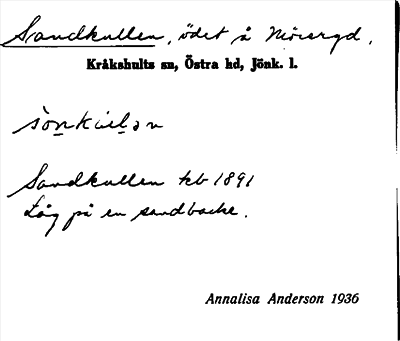 Sandkullen, ödet å Mörergd.
Kråkshults sn, Östra hd, Jönk. l.
Sandkullen tcb 1891
Låg på en sandbacke.
Annalisa Anderson 1936